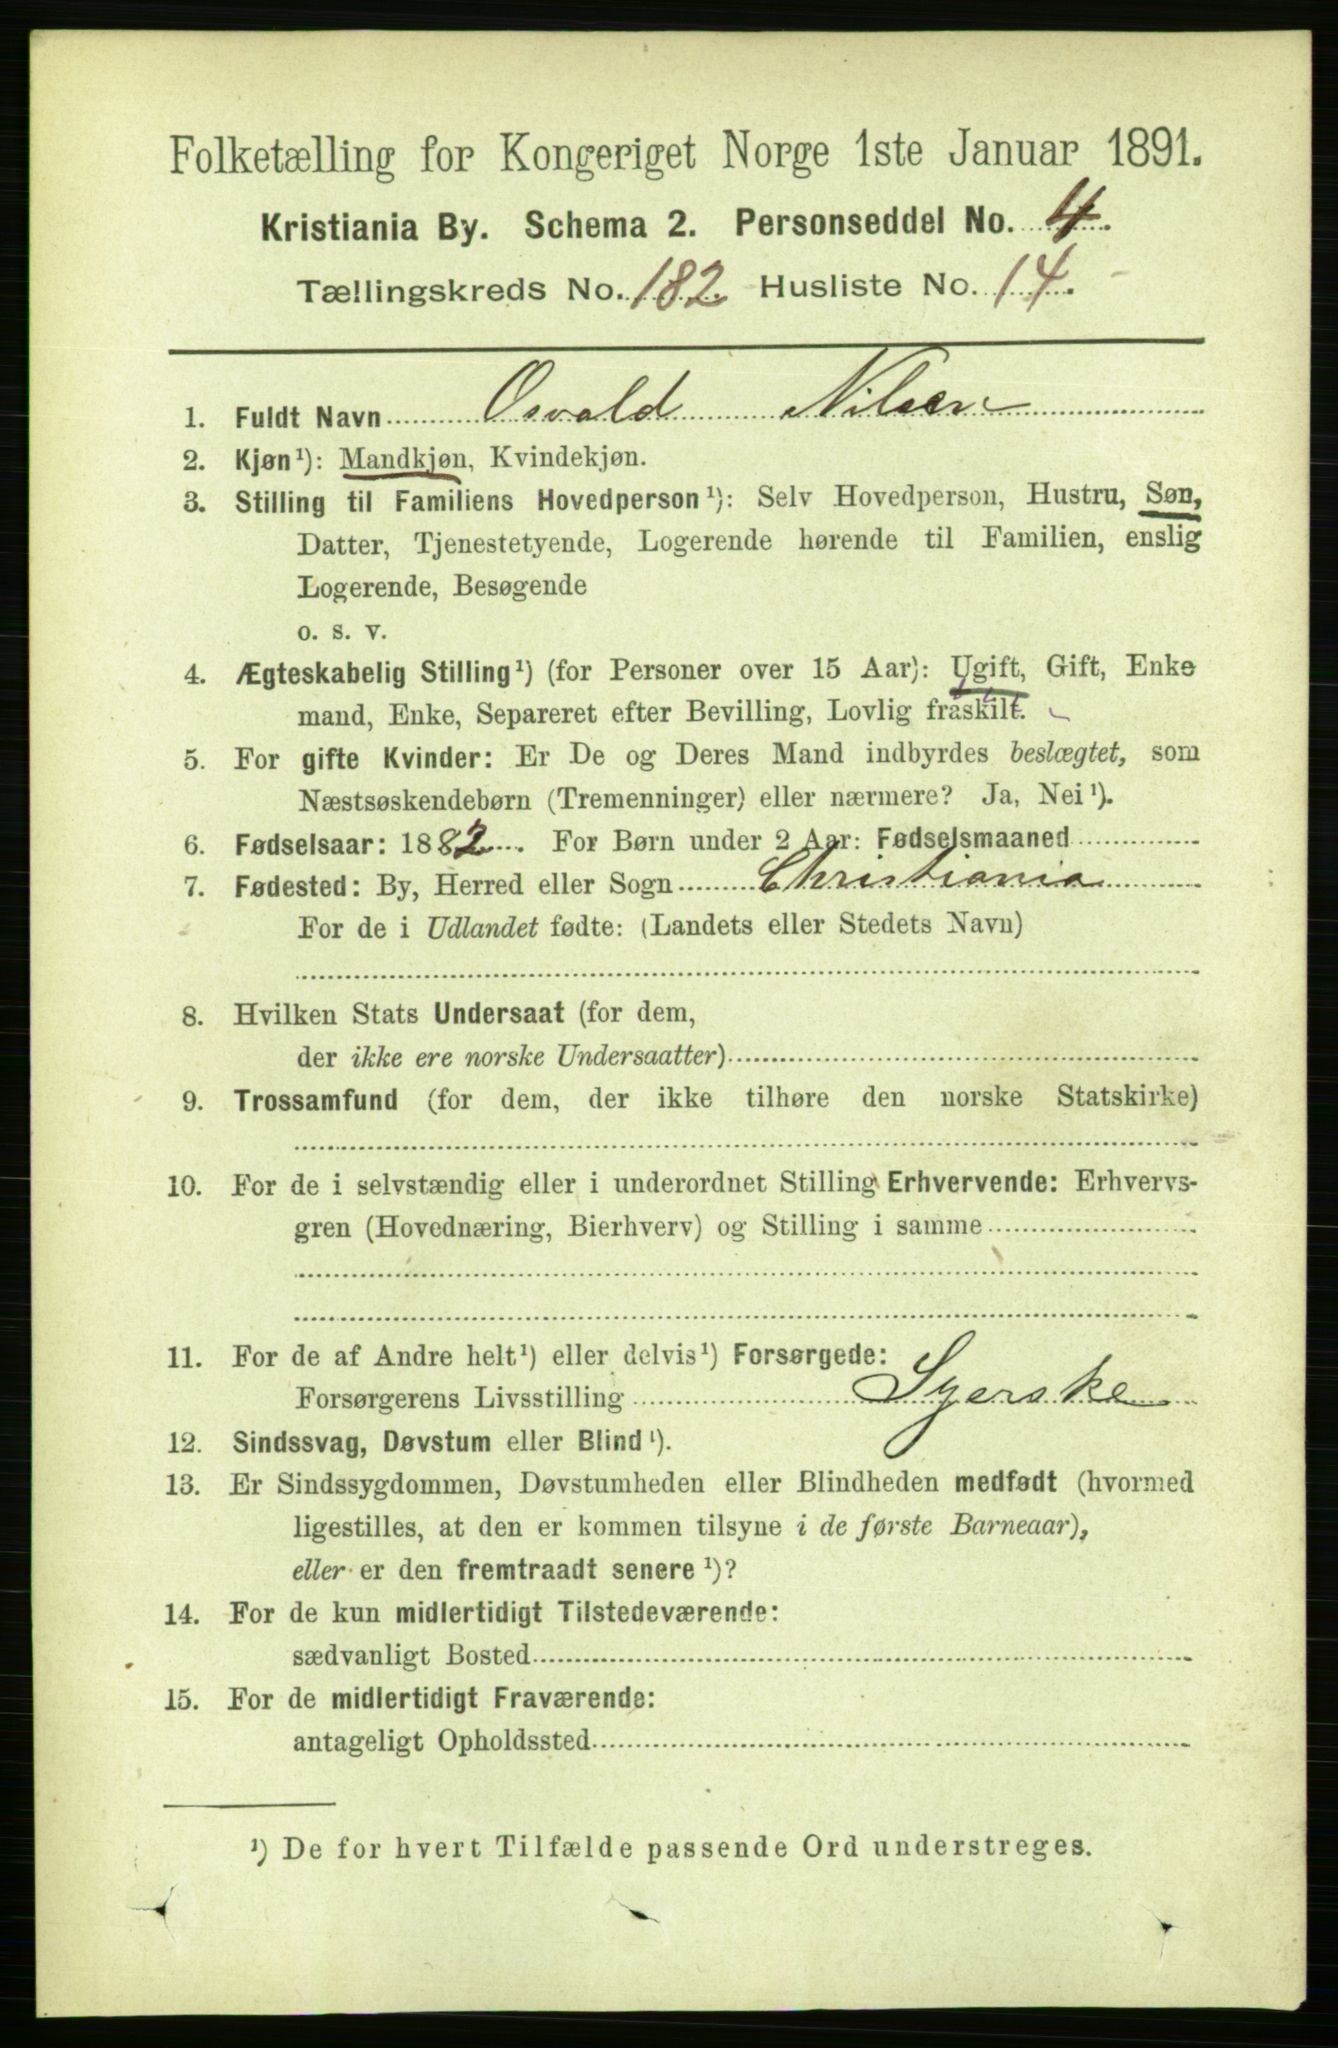 Folketælling for Kongeriget Norge 1ste Januar 1891.
Kristiania By. Schema 2. Personseddel No. 4.
Tællingskreds No. 182 Husliste No. 14.
1. Fuldt Navn Osvald Nilsen
2. Kjøn¹): Mandkjøn, Kvindekjøn.
3. Stilling til Familiens Hovedperson¹): Selv Hovedperson, Hustru, Søn,
Datter, Tjenestetyende, Logerende hørende til Familien, enslig
Logerende, Besøgende
o. s. v.
4. Ægteskabelig Stilling¹) (for Personer over 15 Aar): Ugift, Gift, Enke
mand, Enke, Separeret efter Bevilling, Lovlig fraskilt.
5. For gifte Kvinder: Er De og Deres Mand indbyrdes beslægtet, som
Næstsøskendebørn (Tremenninger) eller nærmere? Ja, Nei¹).
6. Fødselsaar: 1882. For Børn under 2 Aar: Fødselsmaaned
7. Fødested: By, Herred eller Sogn Christiania
For de i Udlandet fødte: (Landets eller Stedets Navn)
8. Hvilken Stats Undersaat (for dem,
der ikke ere norske Undersaatter)
9. Trossamfund (for dem, der ikke tilhøre den norske Statskirke)
10. For de i selvstændig eller i underordnet Stilling Erhvervende: Erhvervs-
gren (Hovednæring, Bierhverv) og Stilling i samme
11. For de af Andre helt¹) eller delvis¹) Forsørgede:
Forsørgerens Livsstilling Syerske
12. Sindssvag, Døvstum eller Blind¹).
13. Er Sindssygdommen, Døvstumheden eller Blindheden medfødt (hvormed
ligestilles, at den er kommen tilsyne i de første Barneaar),
eller er den fremtraadt senere¹)?
14. For de kun midlertidigt Tilstedeværende:
sædvanligt Bosted
15. For de midlertidigt Fraværende:
antageligt Opholdssted
¹) De for hvert Tilfælde passende Ord understreges.